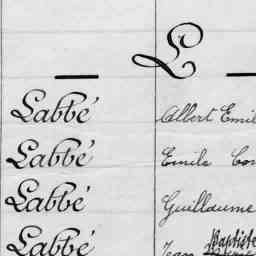 L
Labbé Albert Emil
Labbé Emile
Labbé Guillaume
Labbé Jean Baptiste